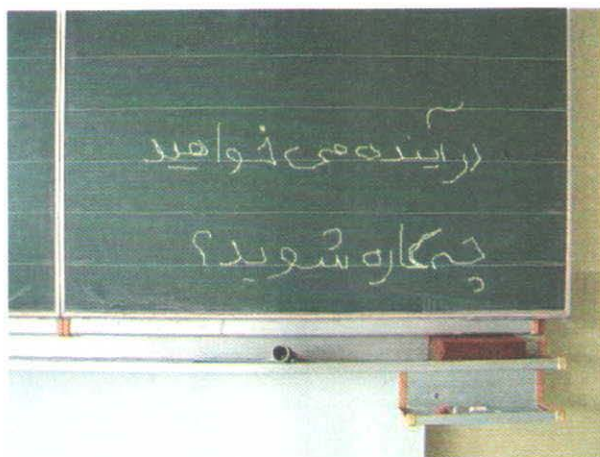 در آینده می خواهید
چه کاره شوید؟